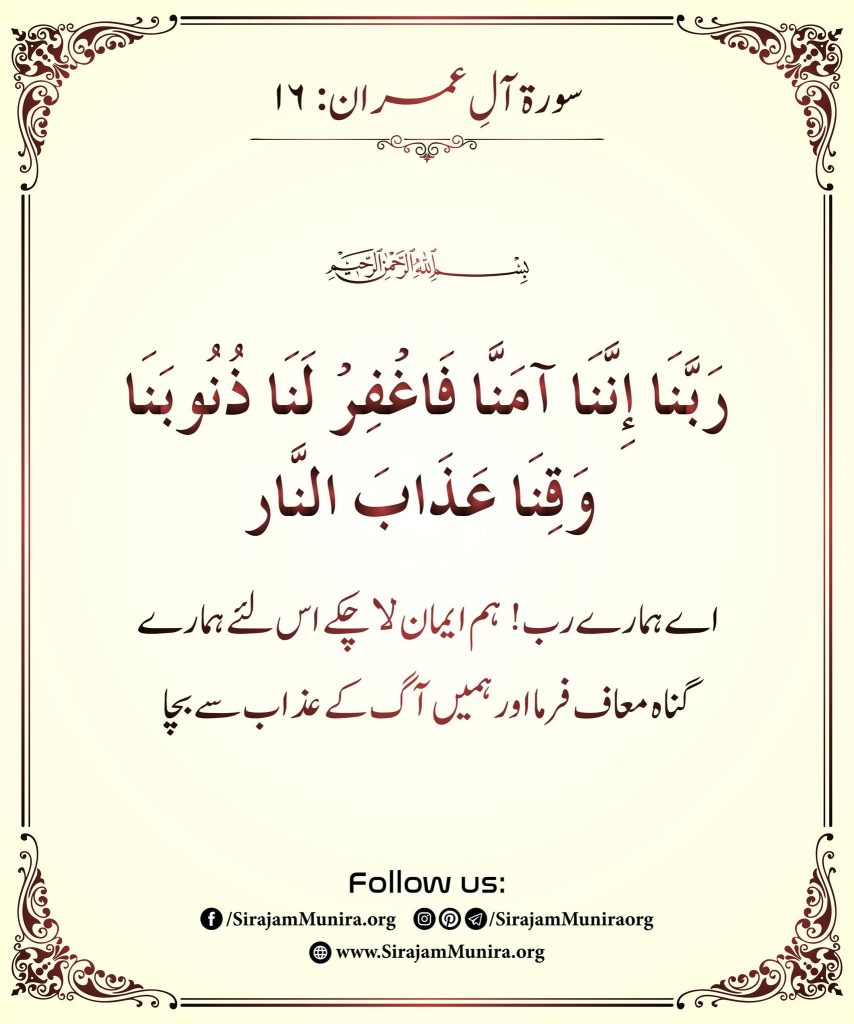 سورۃ آلِ عمران: ١٦
بِسْمِ اللهِ الرَّحْمٰنِ الرَّحِيْمِ
رَبَّنَا إِنَّنَا آمَنَّا فَاغْفِرْ لَنَا ذُنُوبَنَا
وَقِنَا عَذَابَ النَّار
اے ہمارے رب! ہم ایمان لا چکے اس لئے ہمارے
گناہ معاف فرما اور ہمیں آگ کے عذاب سے بچا
Follow us:
/SirajamMunira.org /SirajamMuniraorg
www.SirajamMunira.org